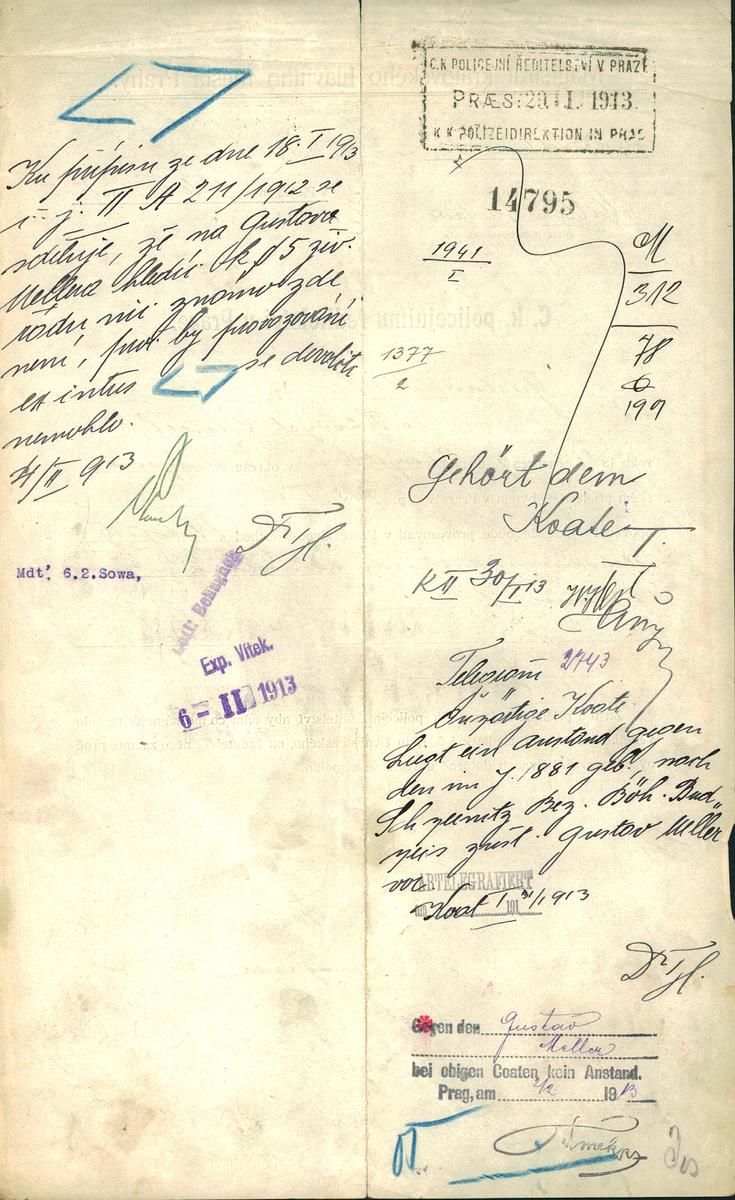 Ku přípisu ze dne 18. I 1913
j. II A 211/1912 se
sděluje, že na Gustava
Mellera hledíc k § 5 živ.
řádu nic známo zde
není, proč by provozování
se dovoliti
ex intus
nemohlo.
4/II 913
Dr Tjl.
Mdt. 6.2.Sowa,
Exp. Vítek.
6- II 1913
C.K. POLICEJNÍ ŘEDITELSTVÍ V PRAZE
PRÆS: 29 I. 1913.
K.K. POLIZEIDIREKTION IN PRAG
14795
1941
I
M
312
78
6
199
1377
2
Gehört dem
Koate I.
K II 30/I 13
Telegram 2743
Auswärtige Koate.
Liegt ein Anstand gegen
den im J. 1881 geb., nach
Bez. Böh. Bud„
weis zust. Gustav Meller
vor
ABTELEGRAFIERT
am 191
Koat I 31/I 1913
Dr Tjl.
Gegen den Gustav
Meller
bei obigen Coaten kein Anstand.
Prag, am 2/2 1913